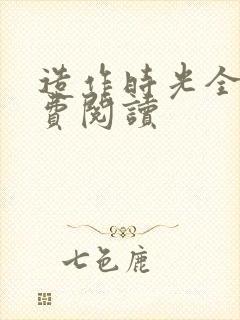 造作時光全
費閱讀
七色鹿